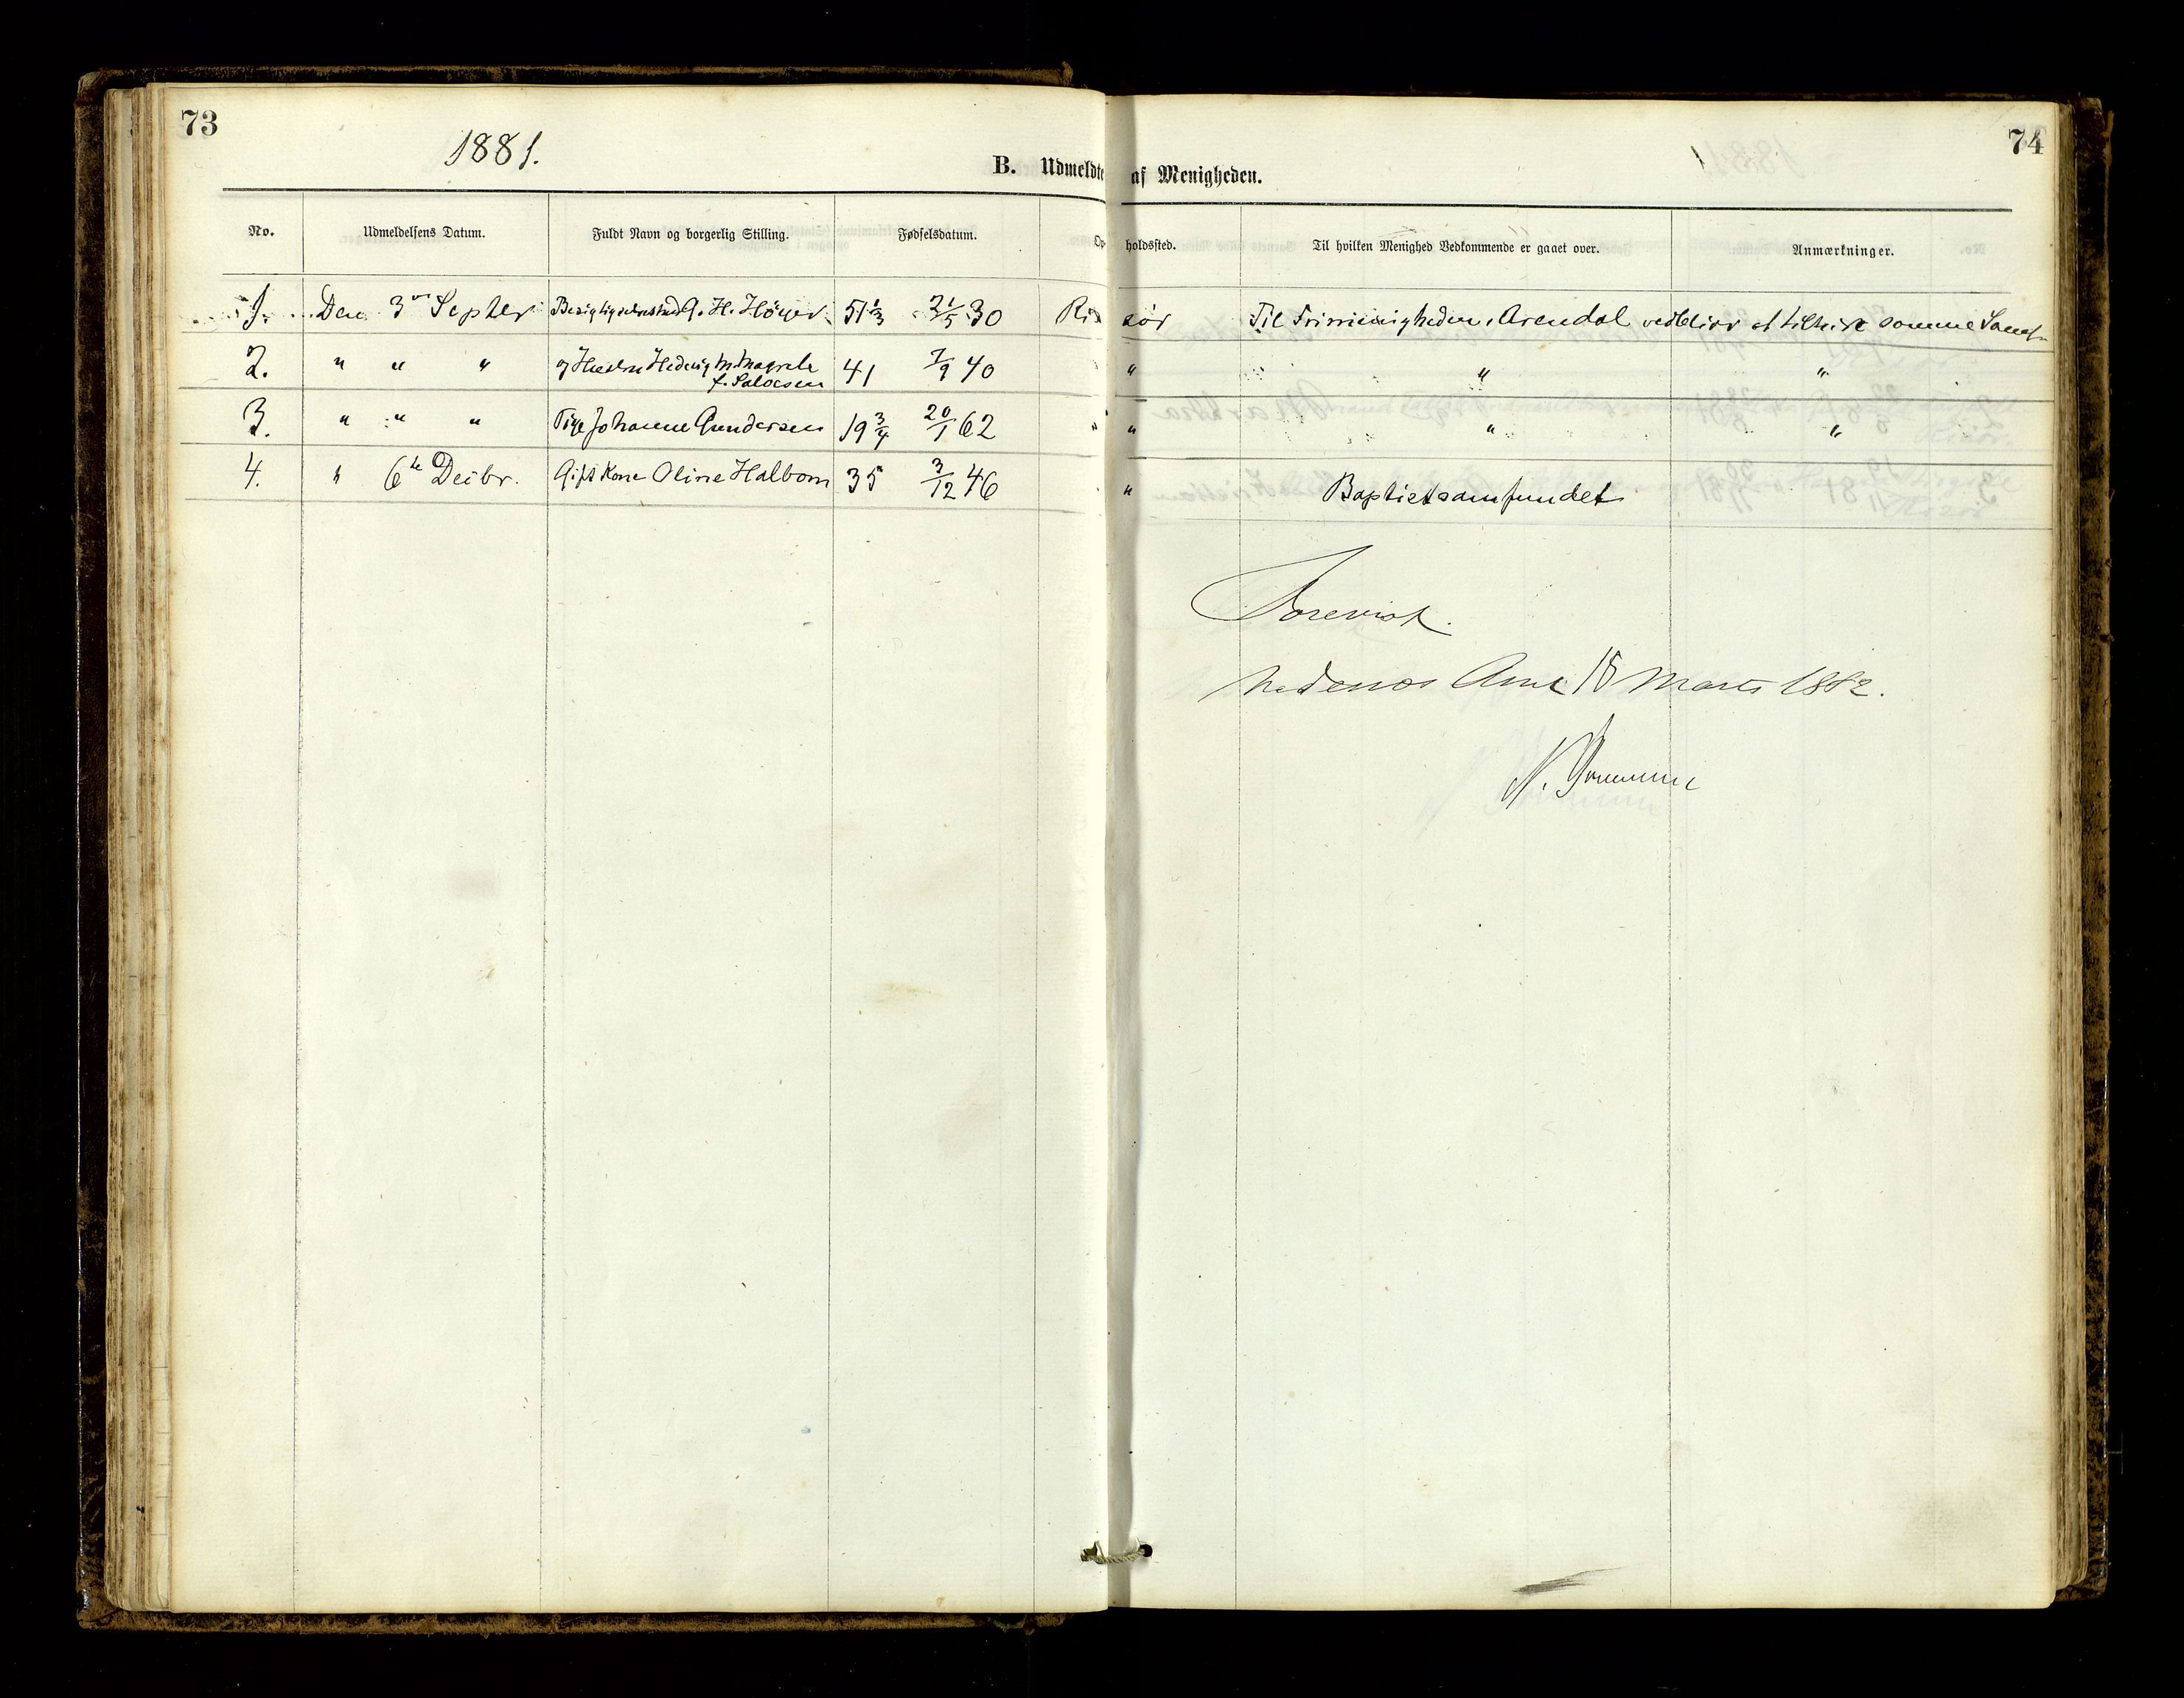 73
74
1881.
B. Udmeldte af Menigheden.
No. Udmeldelsens Datum. Fuldt Navn og borgerlig Stilling. Fødselsdatum. Op holdssted. Til hvilken Menighed Vedkommende er gaaet over. Anmærkninger.
1. Den 3 Septer G. H. Höyer 51 1/3 30 Ri sör Til Frimenigheden i Arendal vedbliver at tilhöre samme Samf.
2. " " " og Hustru Hedevig M. Magrete 41 7/9 40 " " "
3. " " " Pige Johanne Gundersen 19 3/4 20/1 62 " " " "
4. " 6te Decbr. Gift Kone Oline Halbom 35 3/12 46 " Baptistsamfundet
Forevist.
Nedenæs Amt 18 Marts 1882.